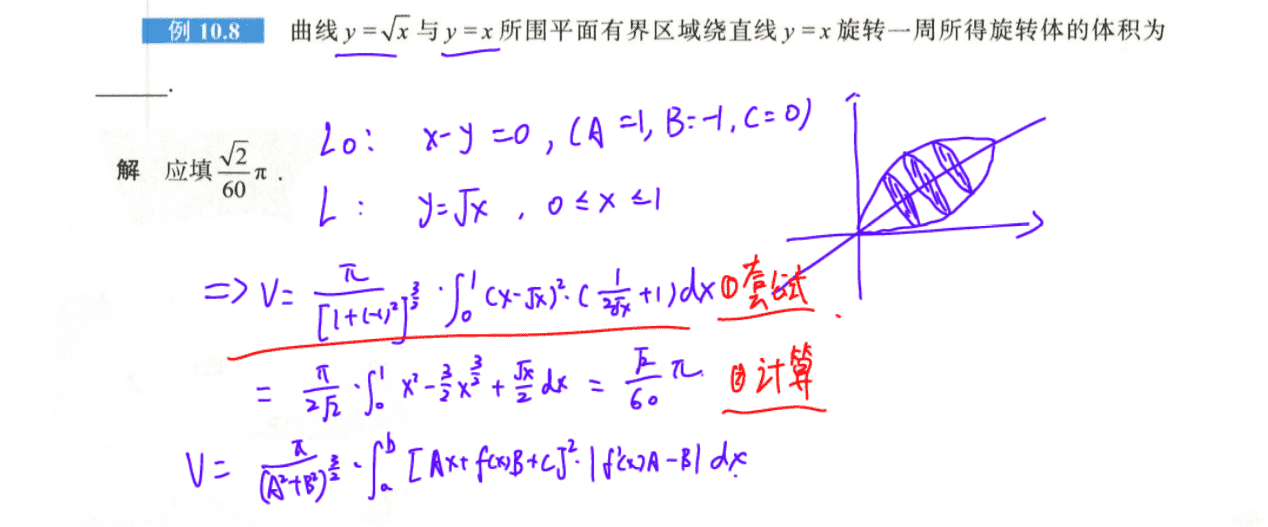 例 10.8 曲线 y=√x 与 y=x 所围平面有界区域绕直线 y=x 旋转一周所得旋转体的体积为
______.
L₀: x-y=0, (A=1, B=-1, C=0)
解 应填 √2/60 π.
L: y=√x, 0≤x≤1
=> V= π/[1+(-1)²]^(3/2) · ∫₀¹ (x-√x)²·(1/(2√x)+1)dx ①套公式
= π/(2√2) · ∫₀¹ x²-(3/2)x^(3/2)+√x/2 dx = √2/60 π. ②计算
V= π/(A²+B²)^(3/2) · ∫ₐᵇ [Ax+f(x)B+C]²·|f'(x)A-B| dx